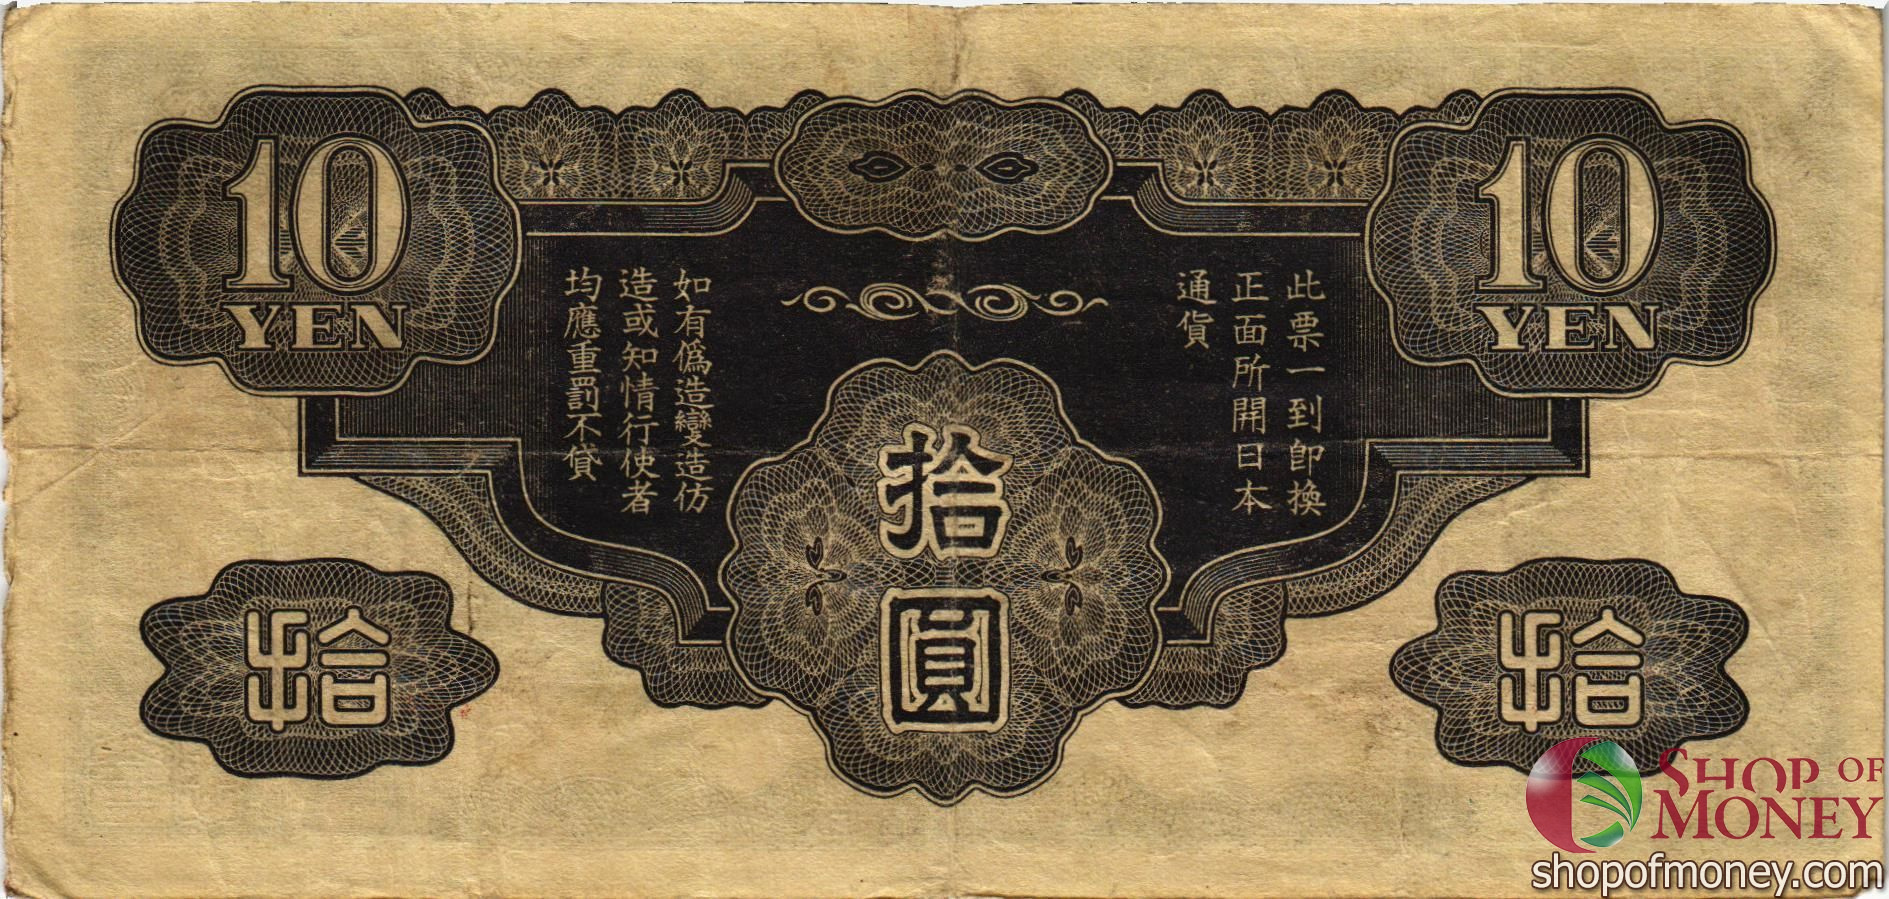 10
YEN
10
YEN
此票一到卽換
正面所開日本
通貨
如有僞造變造仿
造或知情行使者
均應重罰不貸
拾
圓
拾
拾
SHOP OF
MONEY
shopofmoney.com